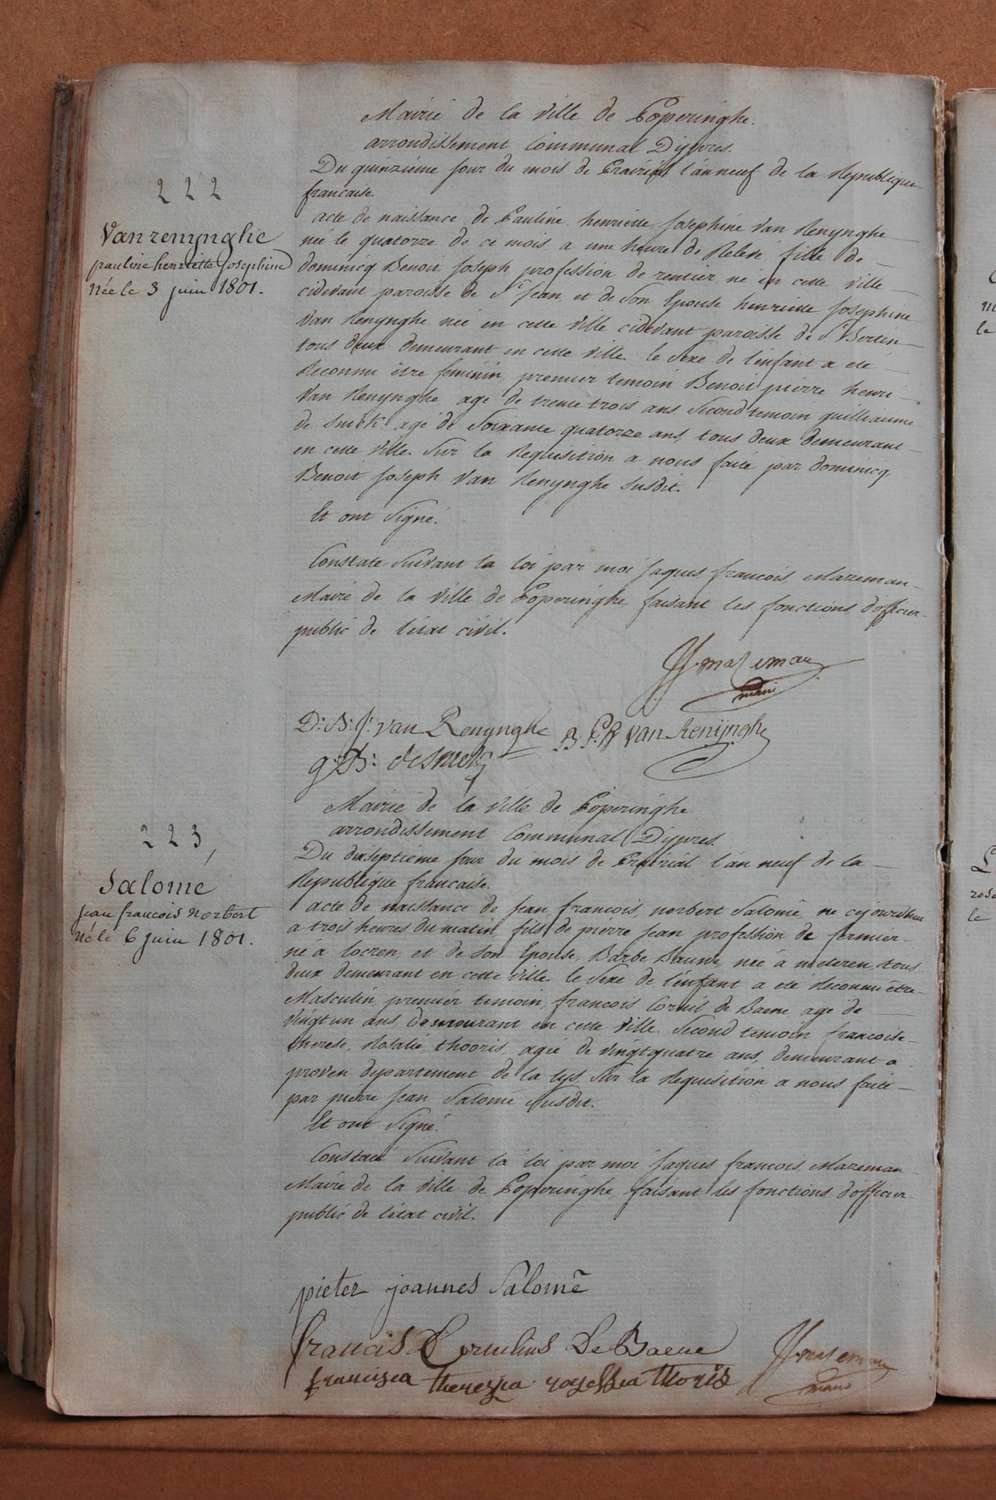 Mairie de la ville de Poperinghe.
arrondissement Communal Dypres.
Du quinzieme jour du mois de Prairial l'an neuf de la Republique
francaise.
222
Vanrenynghe
pauline henriette Josephine
Née le 3 juin 1801.
acte de naissance de Pauline henriette Josephine Van Renynghe
née le quatorze de ce mois a une heure de Relevé, fille de
dominicq Benoit Joseph profession de rentier né en cette ville
cidevant paroisse de St. Jean et de Son Epouse henriette Josephine
Van Renynghe née en cette ville cidevant paroisse de St Bertin
tous deux demeurant en cette ville. le Sexe de l'enfant a eté
Reconnu être feminin, premier temoin Benoit pierre henri
Van Renynghe agé de trente trois ans Second temoin guilliaume
de Smet agé de Soixante quatorze ans tous deux demeurant
en cette ville. Sur la Requisition a nous faite par dominicq
Benoit Joseph Van Renynghe Susdit.
Et ont Signé.
Constaté Suivant la loi par moi Jaques francois Mazeman
Maire de la ville de Poperinghe, faisant les fonctions d'officier
public de l'état civil.
JJ mazeman
maire
D: B: J: van Renynghe B P H van Renijnghe
g: D: desmet
Mairie de la ville de Poperinghe
arrondissement Communal Dypres.
Du dixseptieme jour du mois de Prairial l'an neuf de la
Republique francaise.
223,
Salome
jean francois Norbert
Né le 6 juin 1801.
acte de naissance de Jean francois, norbert Salomé, né cejourdhui
a trois heures du matin, fils de pierre Jean profession de fermier
né a locren, et de Son Epouse, Barbe Baume, née a meteren, tous
deux demeurant en cette ville. le Sexe de l'enfant a eté Reconnu être
Masculin, premier temoin, francois Cornil de Baene agé de
vingt un ans, demeurant en cette ville, Second temoin francoise
therese, Rosalie thooris agée de vingtquatre ans, demeurant a
proven departement de la lys, Sur la Requisition a nous faite
par pierre Jean Salome susdit.
Et ont Signé.
Constaté Suivant la loi par moi Jaques francois Mazeman
Maire de la ville de Poperinghe faisant les fonctions d'officier
public de l'état civil.
pieter joannes Salomé
francis Cornelius De Baene
JJ mazeman
maire
francisca theresia rosessia thoris